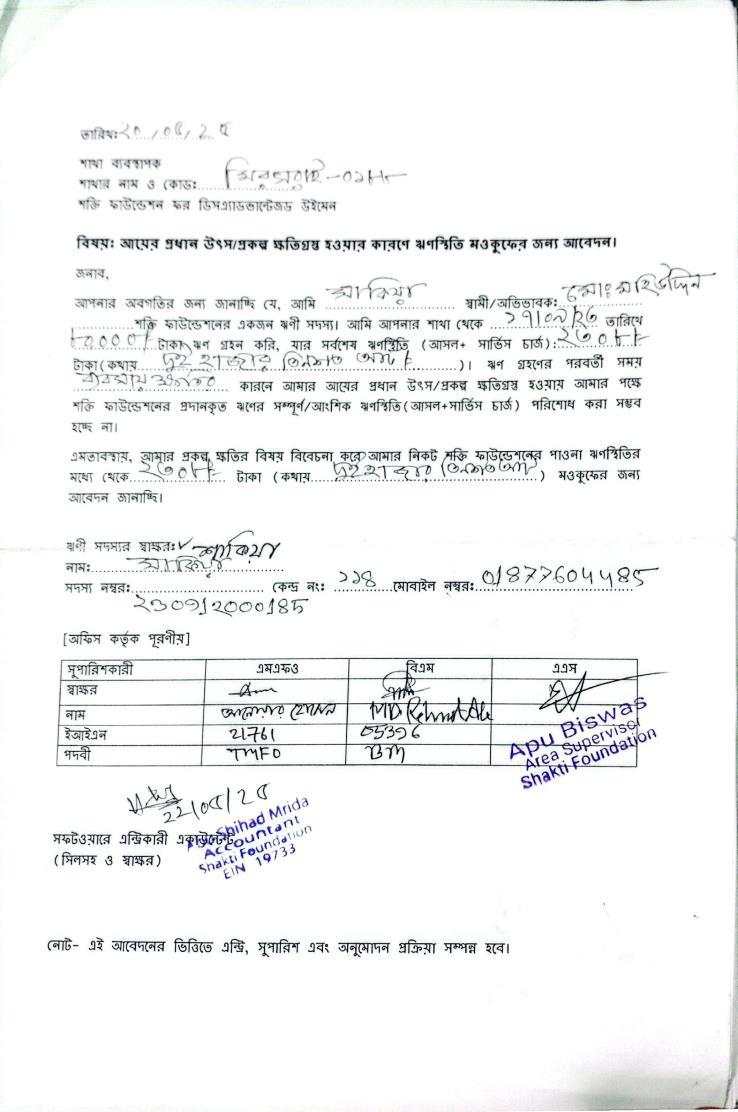 তারিখ: ২০/০৫/২৫
শাখা ব্যবস্থাপক
শাখার নাম ও কোড:
শক্তি ফাউন্ডেশন ফর ডিসএ্যাডভান্টেজড উইমেন
বিষয়: আয়ের প্রধান উৎস/প্রকল্প ক্ষতিগ্রস্থ হওয়ার কারণে ঋণস্থিতি মওকুফের জন্য আবেদন।
জনাব,
আপনার অবগতির জন্য জানাচ্ছি যে, আমি সাকিয়া স্বামী/অভিভাবক: মোঃ মহিউদ্দিন
শক্তি ফাউন্ডেশনের একজন ঋণী সদস্য। আমি আপনার শাখা থেকে তারিখে
টাকা ঋণ গ্রহন করি, যার সর্বশেষ ঋণস্থিতি (আসল+ সার্ভিস চার্জ):
টাকা(কথায় দুই হাজার তিনশত )। ঋণ গ্রহণের পরবর্তী সময়
কারনে আমার আয়ের প্রধান উৎস/প্রকল্প ক্ষতিগ্রস্থ হওয়ায় আমার পক্ষে
শক্তি ফাউন্ডেশনের প্রদানকৃত ঋণের সম্পূর্ণ/আংশিক ঋণস্থিতি(আসল+সার্ভিস চার্জ) পরিশোধ করা সম্ভব
হচ্ছে না।
এমতাবস্থায়, আমার প্রকল্প ক্ষতির বিষয় বিবেচনা করে আমার নিকট শক্তি ফাউন্ডেশনের পাওনা ঋণস্থিতির
মধ্যে থেকে টাকা (কথায় দুই হাজার তিনশত ) মওকুফের জন্য
আবেদন জানাচ্ছি।
ঋণী সদস্যর স্বাক্ষর:
নাম: সাকিয়া
সদস্য নম্বর: কেন্দ্র নং: ১১৪ মোবাইল নম্বর: 01877604485
২৩০৯১২০০০১৪৫
[অফিস কর্তৃক পূরণীয়]
সুপারিশকারী এমএফও বিএম এএস
স্বাক্ষর
নাম আনোয়ার হোসেন MD Rahmat Ali
ইআইএন 21761 05396
পদবী TMFO BM
Apu Biswas
Area Supervisor
Shakti Foundation
22/05/25
সফটওয়ারে এন্ট্রিকারী একাউন্টেন্ট
(সিলসহ ও স্বাক্ষর)
Shihad Mrida
Accountant
Shakti Foundation
EIN 19733
নোট- এই আবেদনের ভিত্তিতে এন্ট্রি, সুপারিশ এবং অনুমোদন প্রক্রিয়া সম্পন্ন হবে।